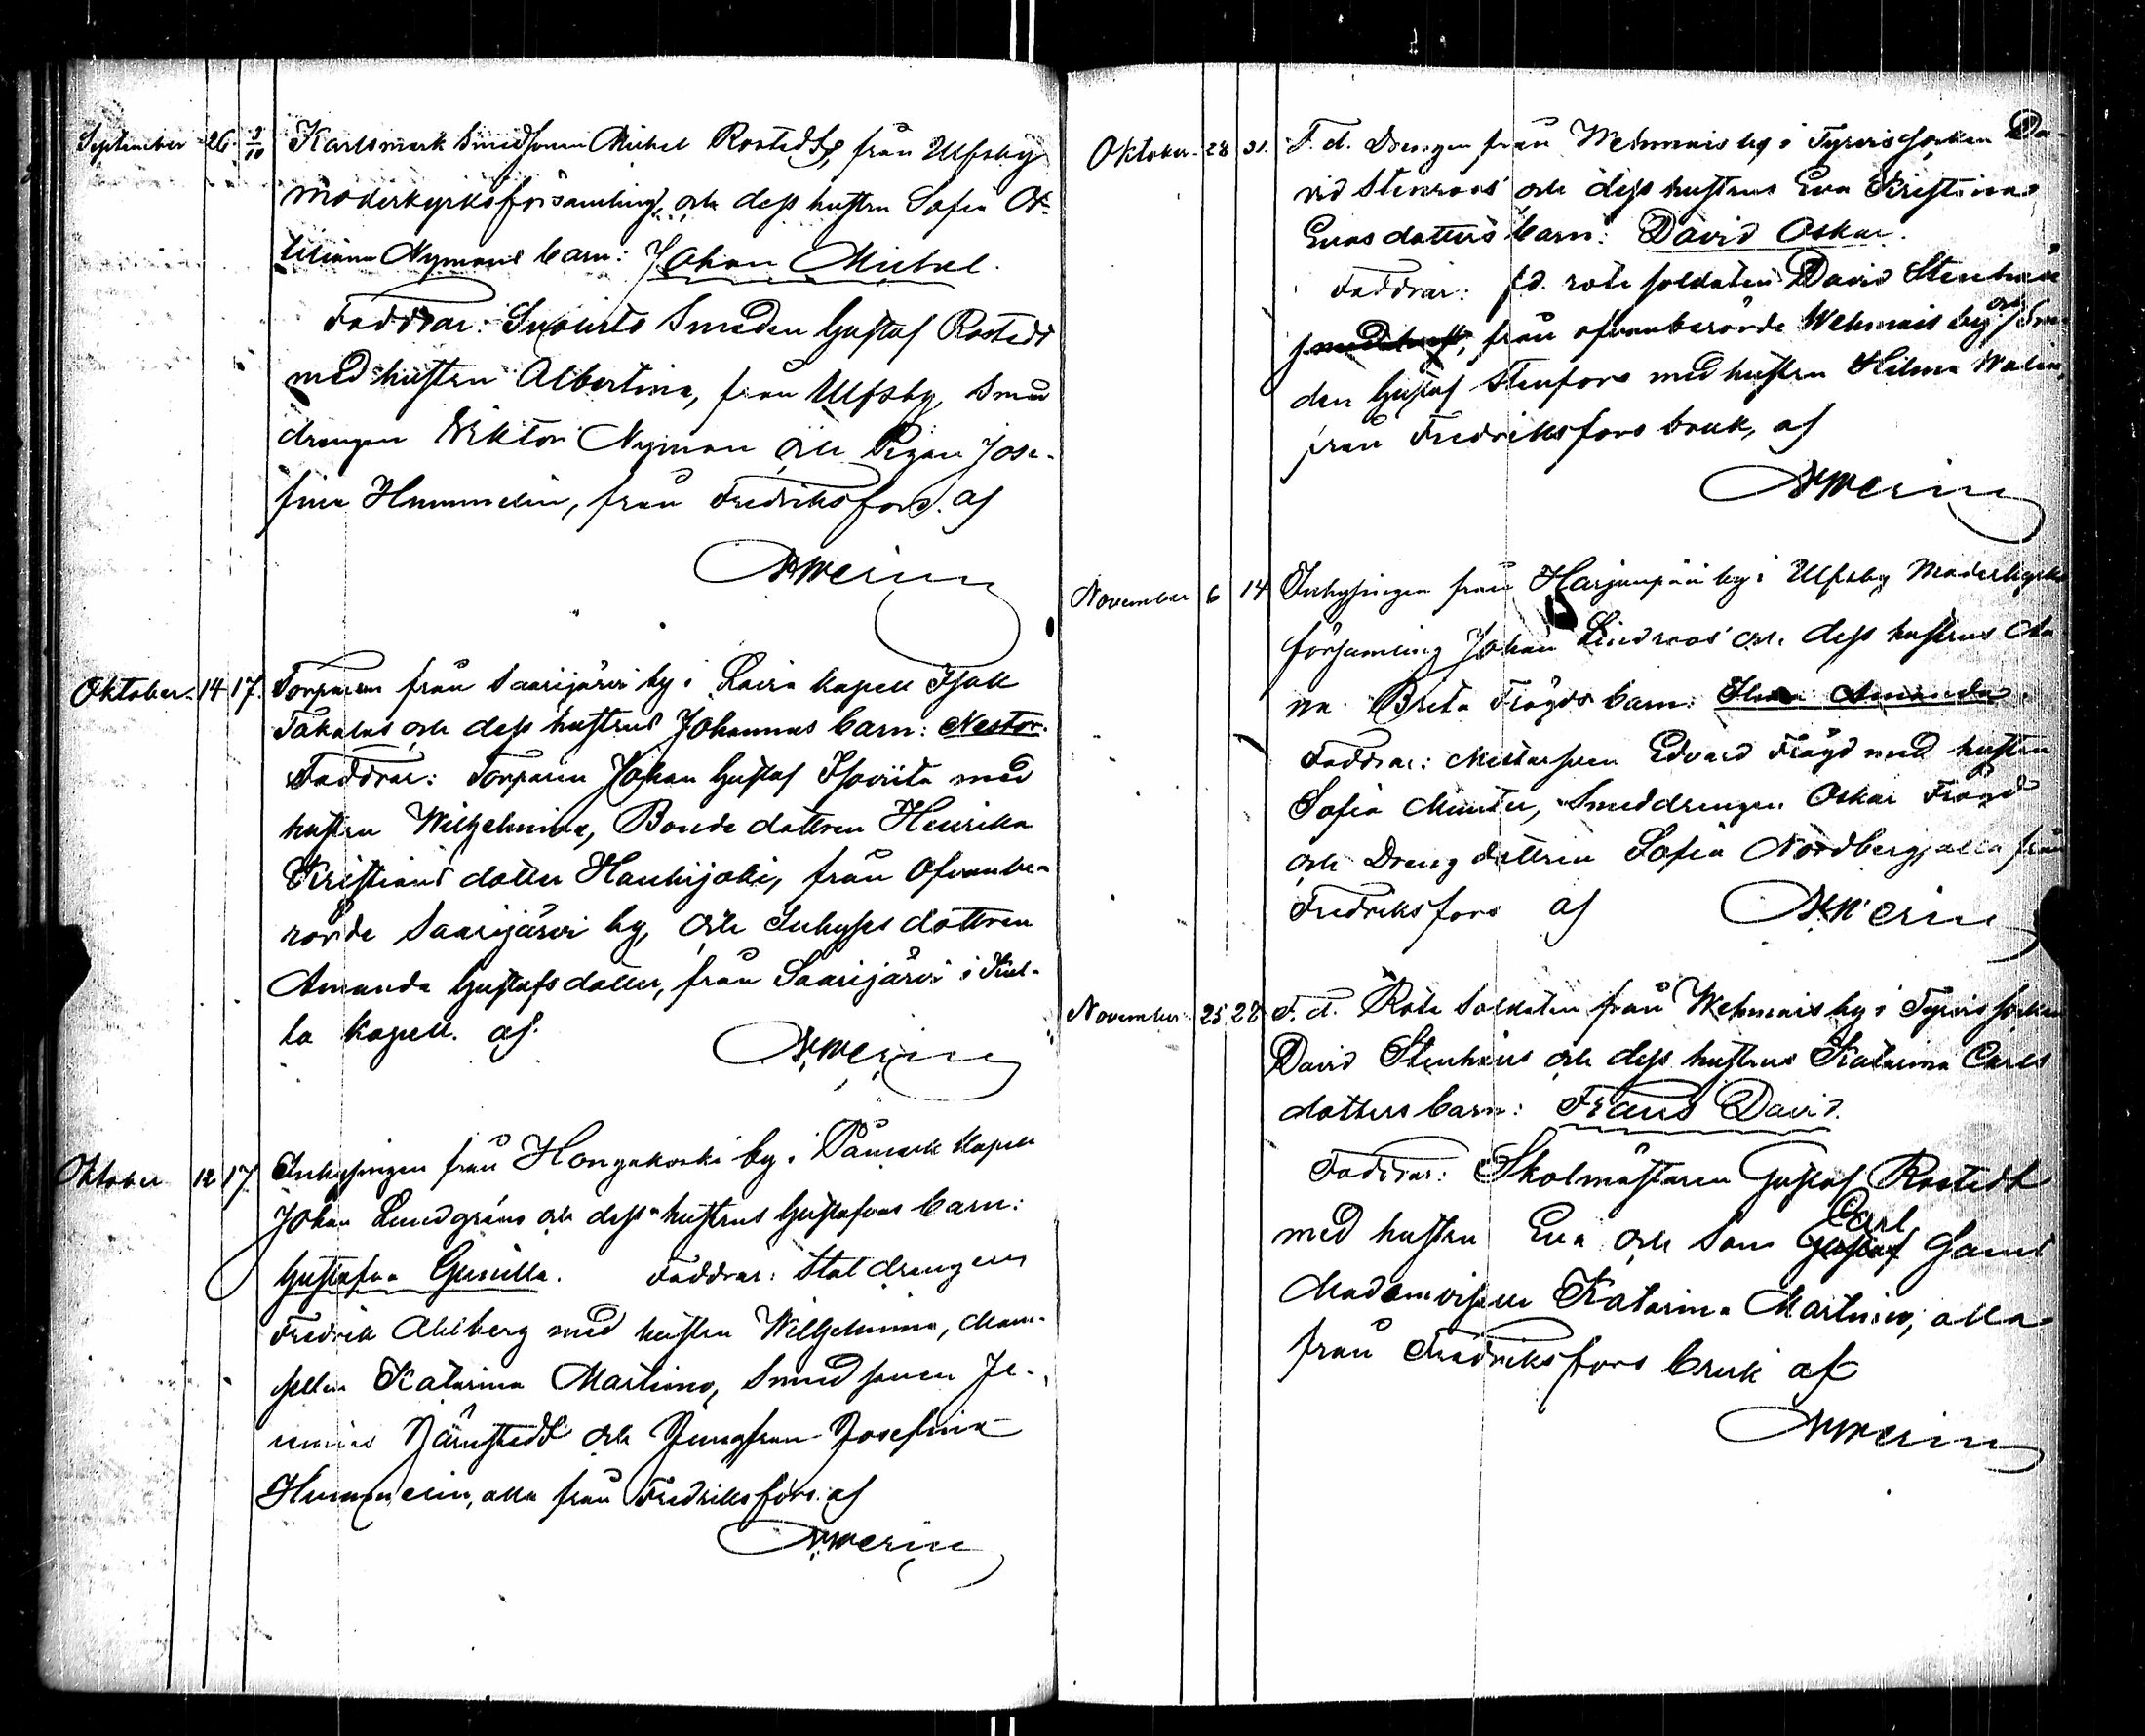 September 26 3/10 Karlsmark Smedsonen Michel Rostedts, från Ulfsby
moderkyrkoförsamling, och dess hustru Sofia Ot-
tiliana Nymans barn: Johan Michel.
Faddrar: Smeden Gustaf Rostedt
med hustru Albertina, från Ulfsby, Smed
drengen Viktor Nyman och Pigan Jose-
fina Hummelin, från Fredriksfors. af
Oktober 14 17. Torparen från Saarijärvi by i Lavia kapell Isak
Takalas och dess hustrus Johannas barn: Nestor.
Faddrar: Torparen Johan Gustaf Isoviita med
hustru Wilhelmina, Bonde dottren Henrika
Kristians dotter Haukijoki, från ofvanbe-
rörde Saarijärvi by, och Inhyses dottren
Amanda Gustafs dotter, från Saarijärvi i Kul-
la kapell. af.
Oktober 12 17 Inhysingen från Hongakoski by i Påmark Kapell
Johan Lundgréns och dess hustrus Gustafvas barn:
Gustafva Gunilla. Faddrar: Stal drengen
Fredrik Ahlberg med hustru Wilhelmina, Mam-
sellen Katarina Martino, Smedsonen
Järnstedt och Jungfrun Josefina
Hummelin, alla från Fredriksfors. af
Oktober 28 31. F. d. Drengen från Wehmais by i Tyrvis Socken Da-
vid Stenroos och dess hustrus Eva Kristina
Evas dotters barn: David Oskar.
Faddrar: f.d. rote soldaten David Stenhäll
från ofvanberörde Wehmais by och Sme-
den Gustaf Stenfors med hustru Hilma Walin,
från Fredriksfors bruk, af
November 6 14 Inhysingen från Harjunpää by i Ulfsby Moderkyrko
församling Johan Lindroos och dess hustrus An
na Brita Frögds barn: Amanda.
Faddrar: Edvard Frögd med hustru
Sofia Munter, Smeddrengen Oskar Frögd
och Dreng dottren Sofia Nordberg, alla från
Fredriksfors af
November 25 28 F. d. Rote Soldaten från Wehmais by i Tyrvis Socken
David Stenhäls och dess hustrus Katarina Carls
dotters barn: Frans David.
Faddrar: Skolmästaren Gustaf Rostedt
med hustru Eva och Son Carl Gustaf samt
Katarina Martino, alla
från Fredriksfors bruk af